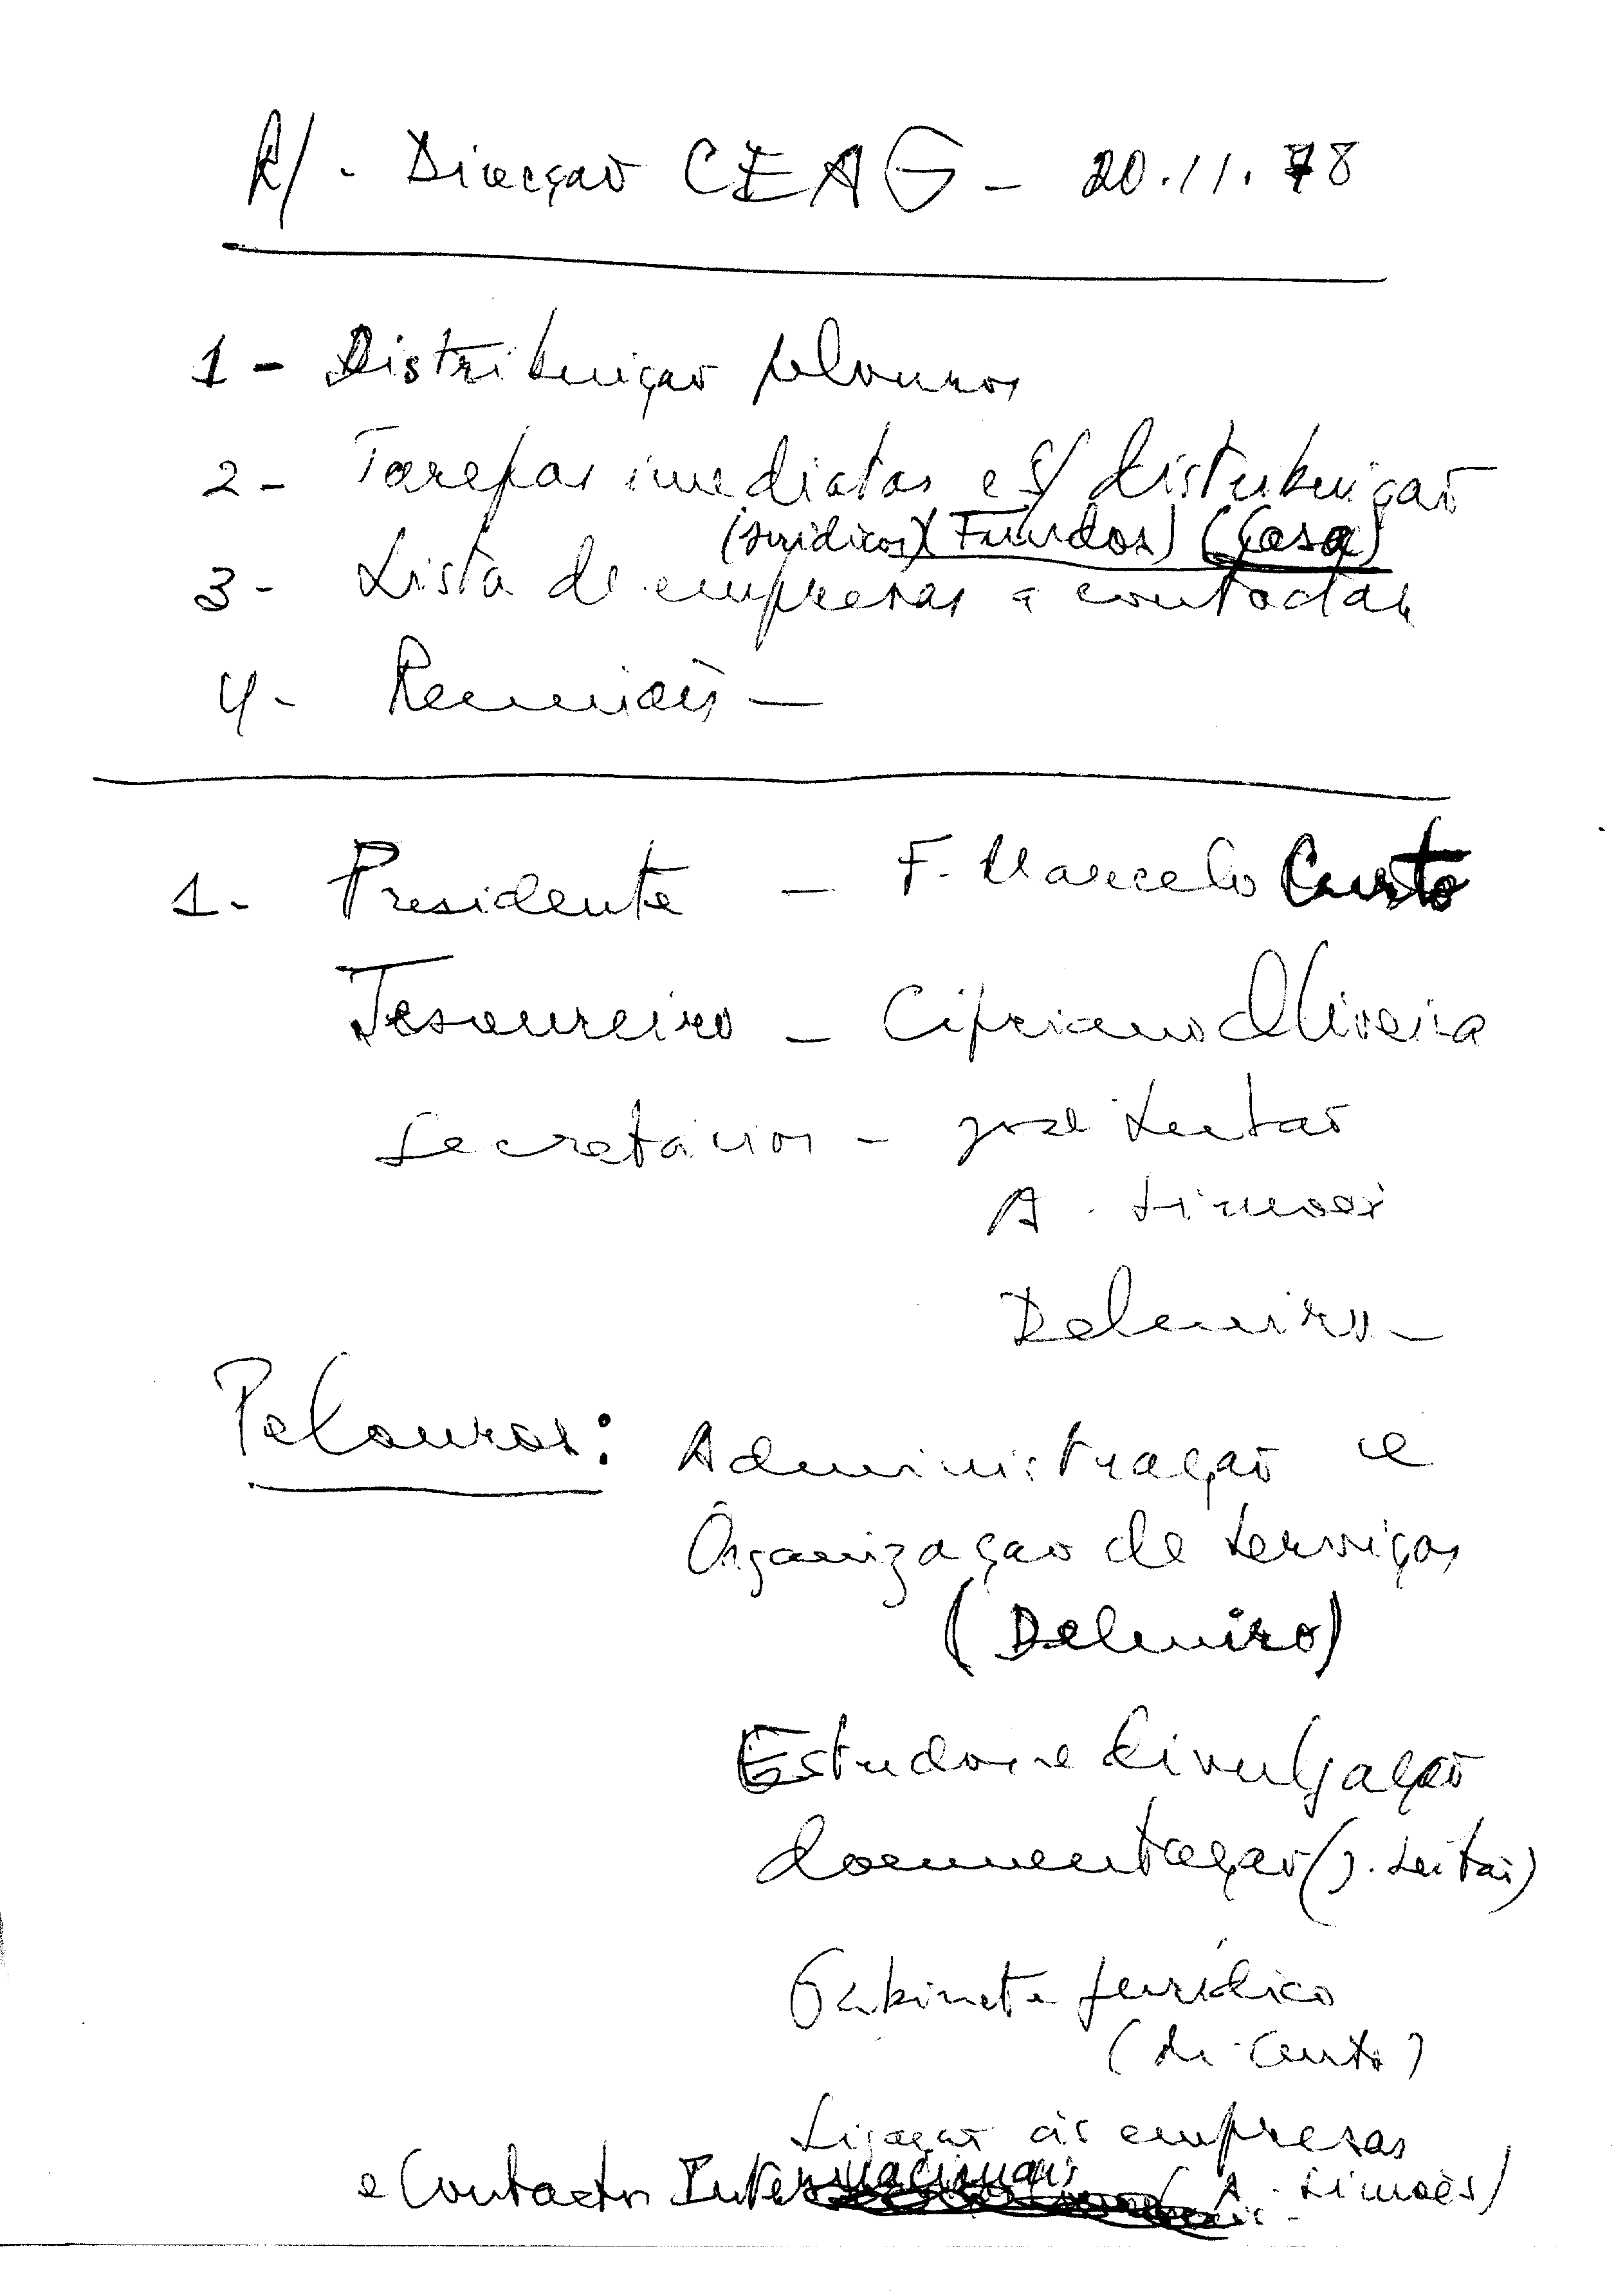 R/ - Direcção CEAG - 20.11.78
1 - Distribuição pelouros
2 - Tarefas imediatas e s/ distribuição
(jurídicos) (Fundos) (Casa)
3 - Lista de empresas a contactar
4 - Reuniões -
1 - Presidente - F. Marcelo Curto
Tesoureiro - Cipriano Oliveira
Secretários - José Leitão
A. Simões
Delmiro -
Pelouros: Administração e
Organização de Serviços
(Delmiro)
Estudos e divulgação
documentação (J. Leitão)
Gabinete Jurídico
(M. Curto)
Ligação às empresas
e Contactos Internacionais (A. Simões)